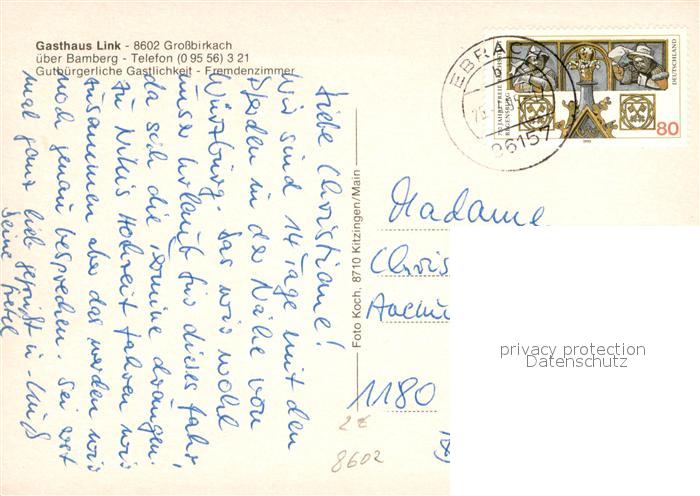 Gasthaus Link - 8602 Großbirkach
über Bamberg - Telefon (0 95 56) 3 21
Gutbürgerliche Gastlichkeit - Fremdenzimmer
Liebe Christiane!
Wir sind 14 Tage mit den
Pferden in der Nähe von
Würzburg. Das wird wohl
unser Urlaub für dieses Jahr,
da sich die Termine drängen.
Zu Nikis Hochzeit fahren wir
zusammen aber das werden wir
noch genau besprechen. Sei erst
mal ganz lieb gegrüßt u.
Deine
Foto Koch, 8710 Kitzingen/Main
EBRACH
96157
REGENSBURG
DEUTSCHLAND
1995
80
Madame
Chris
1180
2€
8602
privacy protection
Datenschutz